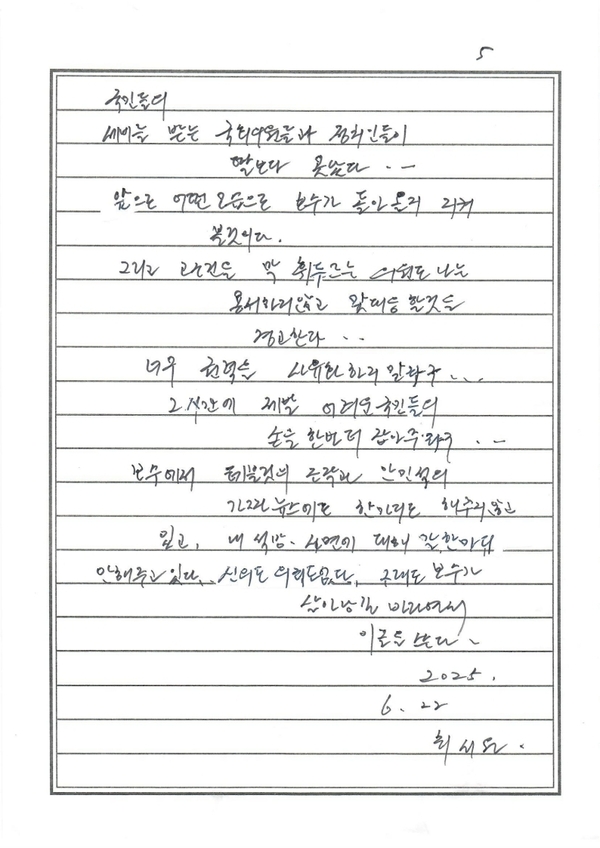 5
국민들의
세비를 받는 국회의원들과 정치인들이
딸보다 못났다 . --
앞으로 어떤 모습으로 보수가 돌아올지 지켜
볼것이다.
그리고 권력을 막 휘두르는 여권도 나는
용서하지않고 맞대응 할것을
경고한다 . .
너무 권력을 사유화하지 말라구 . . .
그 시간에 제발 어려운 국민들의
손을 한번더 잡아주라구 . --
보수에서 태블릿의 조작과 안민석의
가짜뉴스에도 한가지도 해주지않고
있고, 내 석방. 사면에 대해 말한마디
안해주고 있다.. 신의도 의리도없다, 그래도 보수가
살아남길 바라면서
이글을 쓴다 .
2025.
6. 22
최서원.